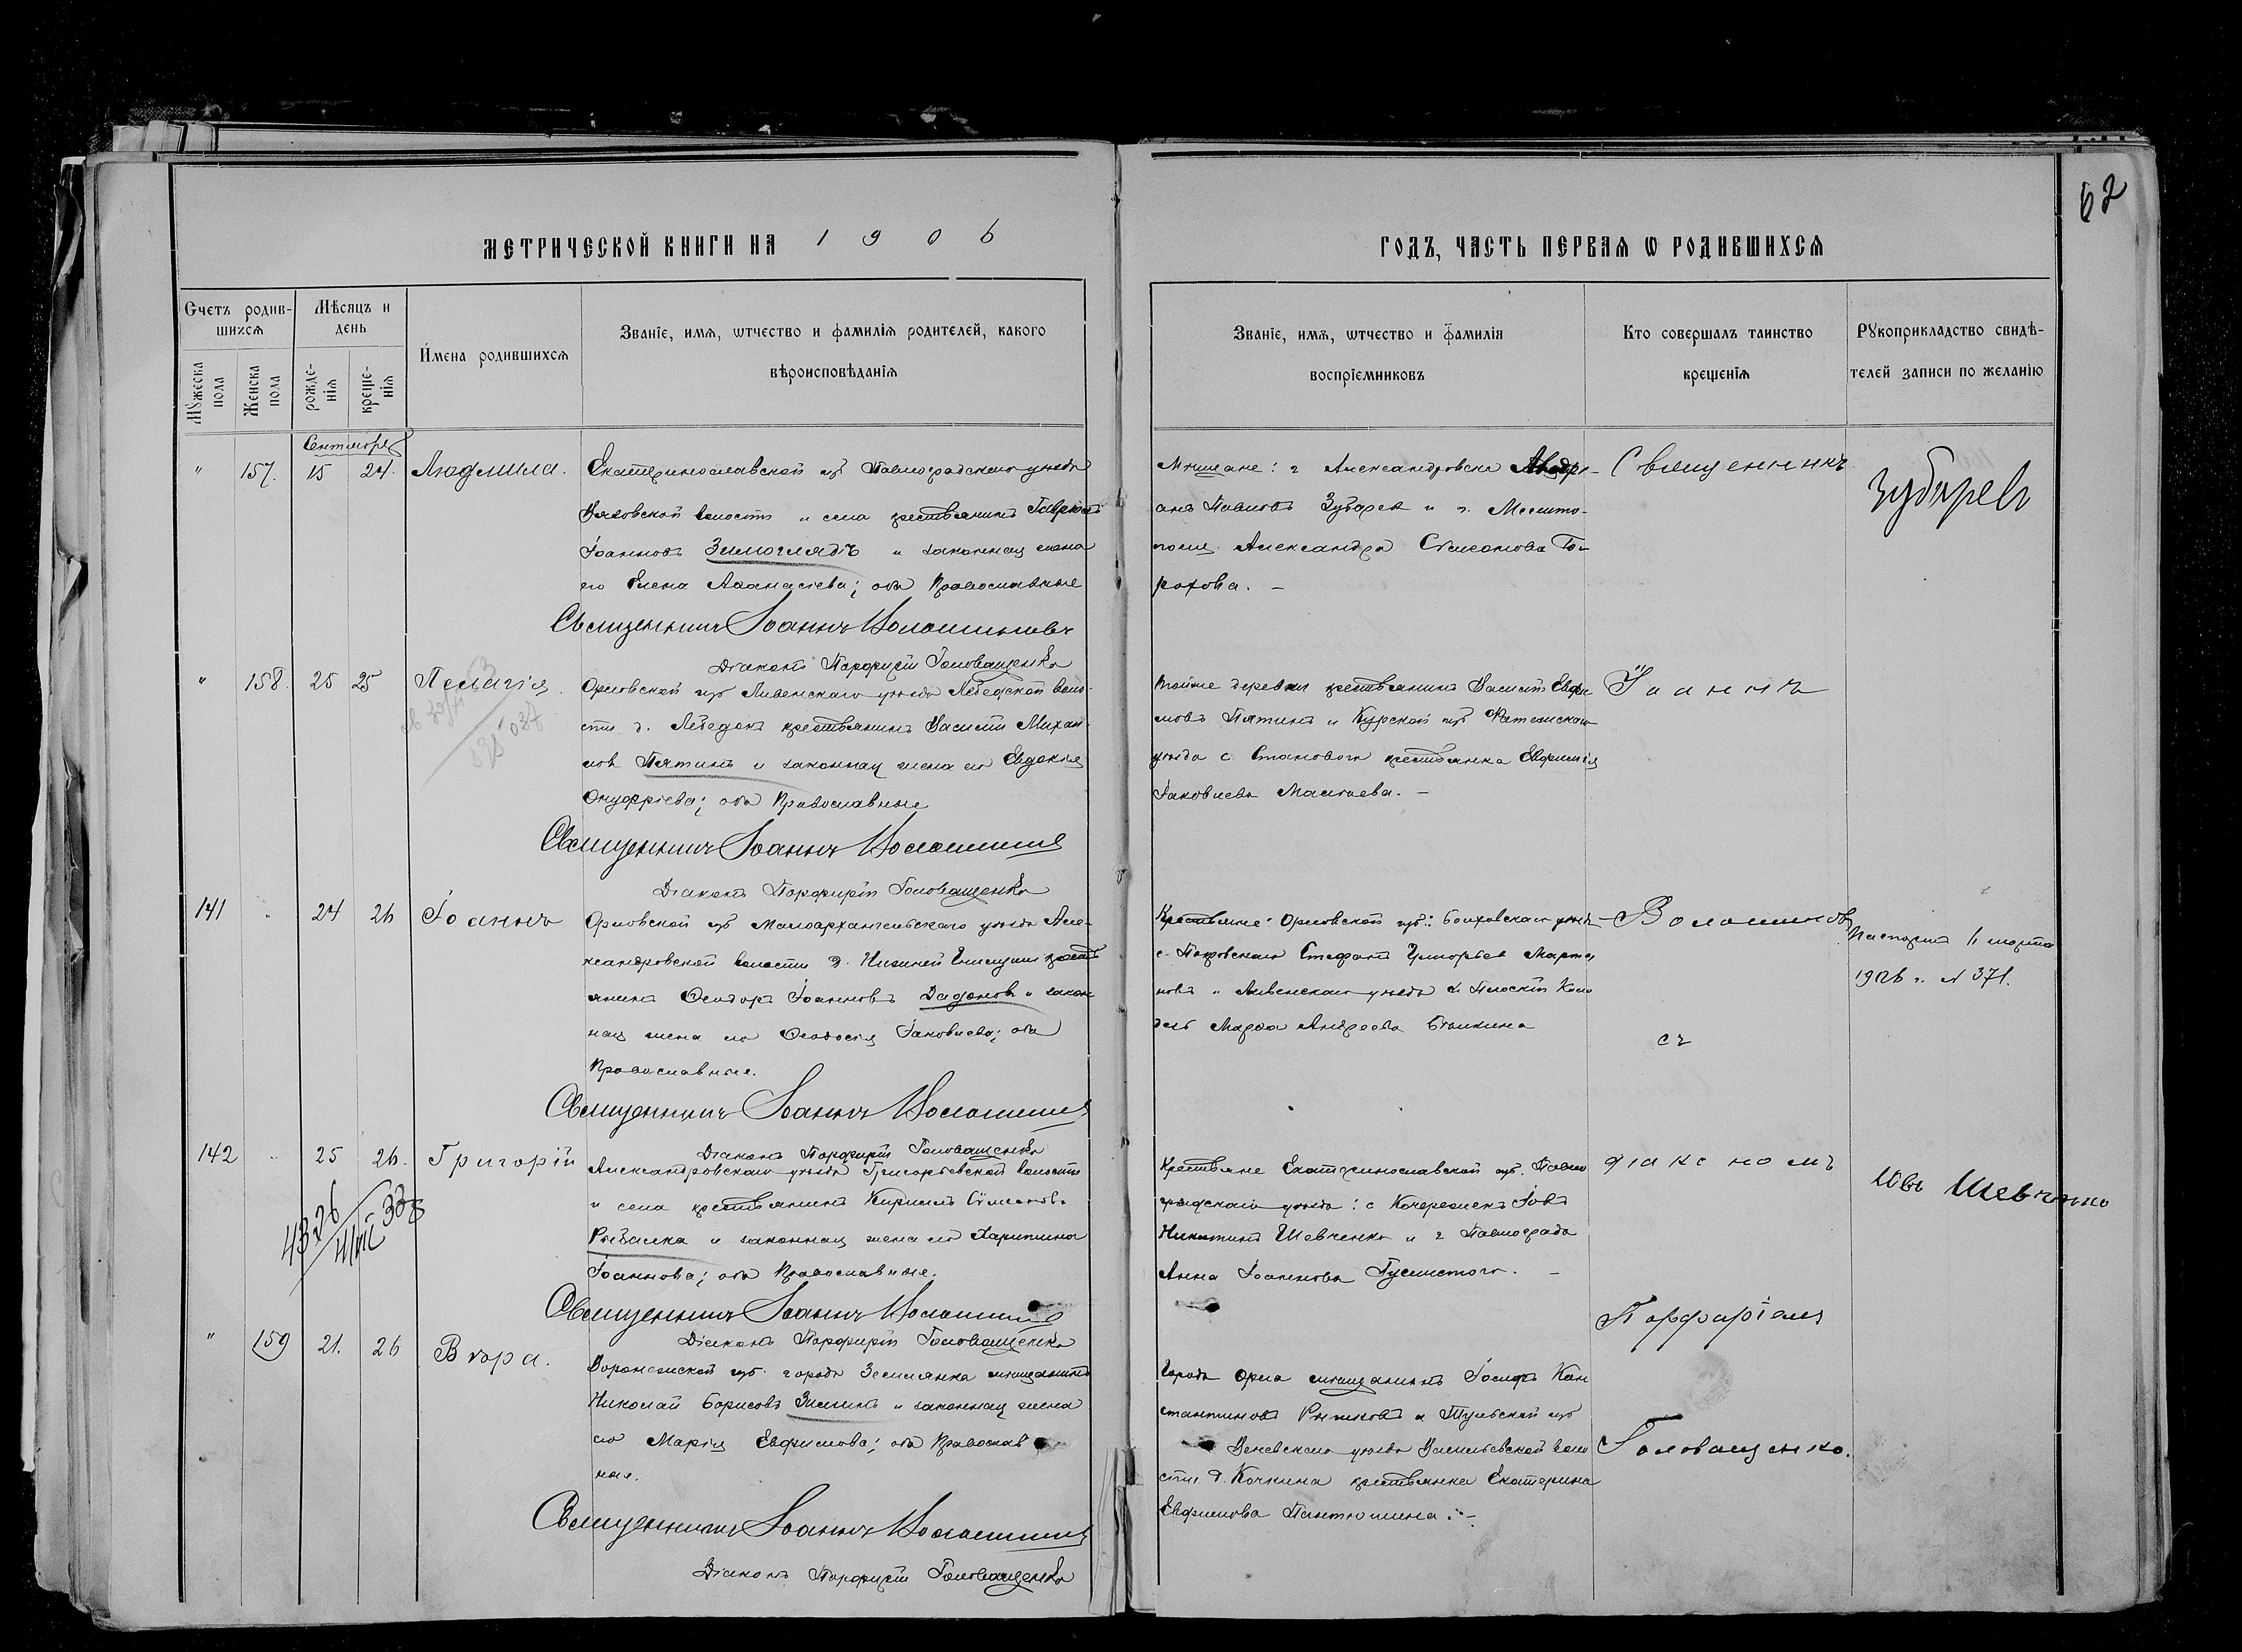 62
МЕТРИЧЕСКОЙ КНИГИ НА 1906
ГОДЪ, ЧАСТЬ ПЕРВАЯ Ѡ РОДИВШИХСЯ
Счетъ родившихся
Мѣсяцъ и день
Имена родившихся
Званіе, имя, ѡтчество и фамилія родителей, какого
вѣроисповѣданія
Мꙋжеска пола
Женска пола
рожде-нія
креще-нія
Званіе, имя, ѡтчество и фамилія
воспріемниковъ
Кто совершалъ таинство
крещенія
Рꙋкоприкладство свидѣ-
телей записи по желанію
Сентября
" 157. 15 24. Людмила.
Екатеринославской губ Павлоградскаго уѣзда
волости и села крестьянинъ Гавріилъ
Іоанновъ Зимоглядъ и законная жена
его Елена Аѳанасіева; оба Православные
Священникъ Іоаннъ Волошиновъ
Діаконъ Порфирій Головащенко
Мѣщане: г Александровска
анъ Павловъ Зубаревъ и г. Мелито-
поля Александра Симонова Го-
рохова. –
Священникъ
Зубаревъ
" 158. 25 25 Пелагія.
Орловской губ Ливенскаго уѣзда Лебедской воло-
сти д. Лебедокъ крестьянинъ Василій Михаи-
ловъ Пятинъ и законная жена его Евдокія
Онуфріева; оба Православные
Священникъ Іоаннъ Волошинов
Діаконъ Порфирій Головащенко
деревни крестьянинъ Василій Евфи-
мовъ Пятинъ и Курской губ Фатежскаго
уѣзда с. Становаго крестьянка Евфимія
Іаковлева –
Іоаннъ
141 " 24 26 Іоаннъ
Орловской губ Малоархангельскаго уѣзда Але-
ксандровской волости д. Нижней крестья-
янинъ Ѳеодоръ Іоанновъ Дадоновъ и закон-
ная жена его Ѳеодосія Іаковлева; оба
Православные.
Священникъ Іоаннъ Волошинов
Діаконъ Порфирій Головащенко
Крестьяне: Орловской губ.: Болховскаго уѣзда
с. Покровскаго Стефанъ Григорьев Марты-
новъ и Ливенскаго уѣзда Плоскій Коло-
дезь Марѳа Андреева
Волошиновъ
съ
Паспортъ 11 марта
1906 г. № 371.
142 " 25 26. Григорій
Александровскаго уѣзда Григорьевской волости
и села крестьянинъ Кириллъ Симоновъ
Рыбалка и законная жена его Харитина
Іоаннова; оба Православные.
Священникъ Іоаннъ Волошинов
Діаконъ Порфирій Головащенко
Крестьяне Екатеринославской губ. Павло-
градскаго уѣзда: с Кочережекъ Іовъ
Никитинъ Шевченко и г Павлограда
Анна Іоаннова –
діакономъ
Іовъ Шевченко
Порфиріемъ
" 159 21. 26 Вѣра.
Воронежской губ. города Землянка мѣщанинъ
Николай Борисовъ Зиминъ и законная жена
его Марія Евфимова; оба Православ-
ные.
Священникъ Іоаннъ Волошинов
Діаконъ Порфирій Головащенко
Города Орла мѣщанинъ Іосифъ Кон-
стантиновъ Рыжковъ и Тульской губ
Веневскаго уѣзда Васильевской воло-
сти д. Кочкина крестьянка Екатерина
Евфимова Пантюшина. –
Головащенко.